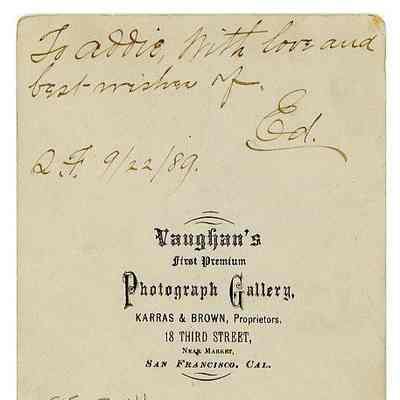 To Addie, With love and
best wishes of,
Ed.
S.F. 9/22/89.
Vaughan's
First Premium
Photograph Gallery,
KARRAS & BROWN, Proprietors.
18 THIRD STREET,
NEAR MARKET,
SAN FRANCISCO, CAL.